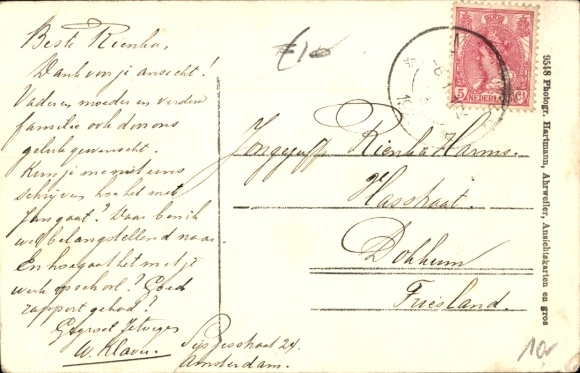 Beste Rienha,
Dank voor je ansicht!
Vader en moeder en verdere
familie ook door ons
geluk gewenscht.
Kun je me niet eens
schrijven hoe het met
Jan gaat? Daar ben ik
wel belangstellend naar.
En hoe gaat het met je
werk op school? Goed
rapport gehad?
Gegroet
W. Klaver.
straat 24.
Amsterdam.
£10
5 Ct
NEDERLAND
Rienha Harms.
Hasstraat.
Dokkum
Friesland.
9518 Photogr. Hartmann, Ahrweiler, Ansichtskarten en gros
10,-